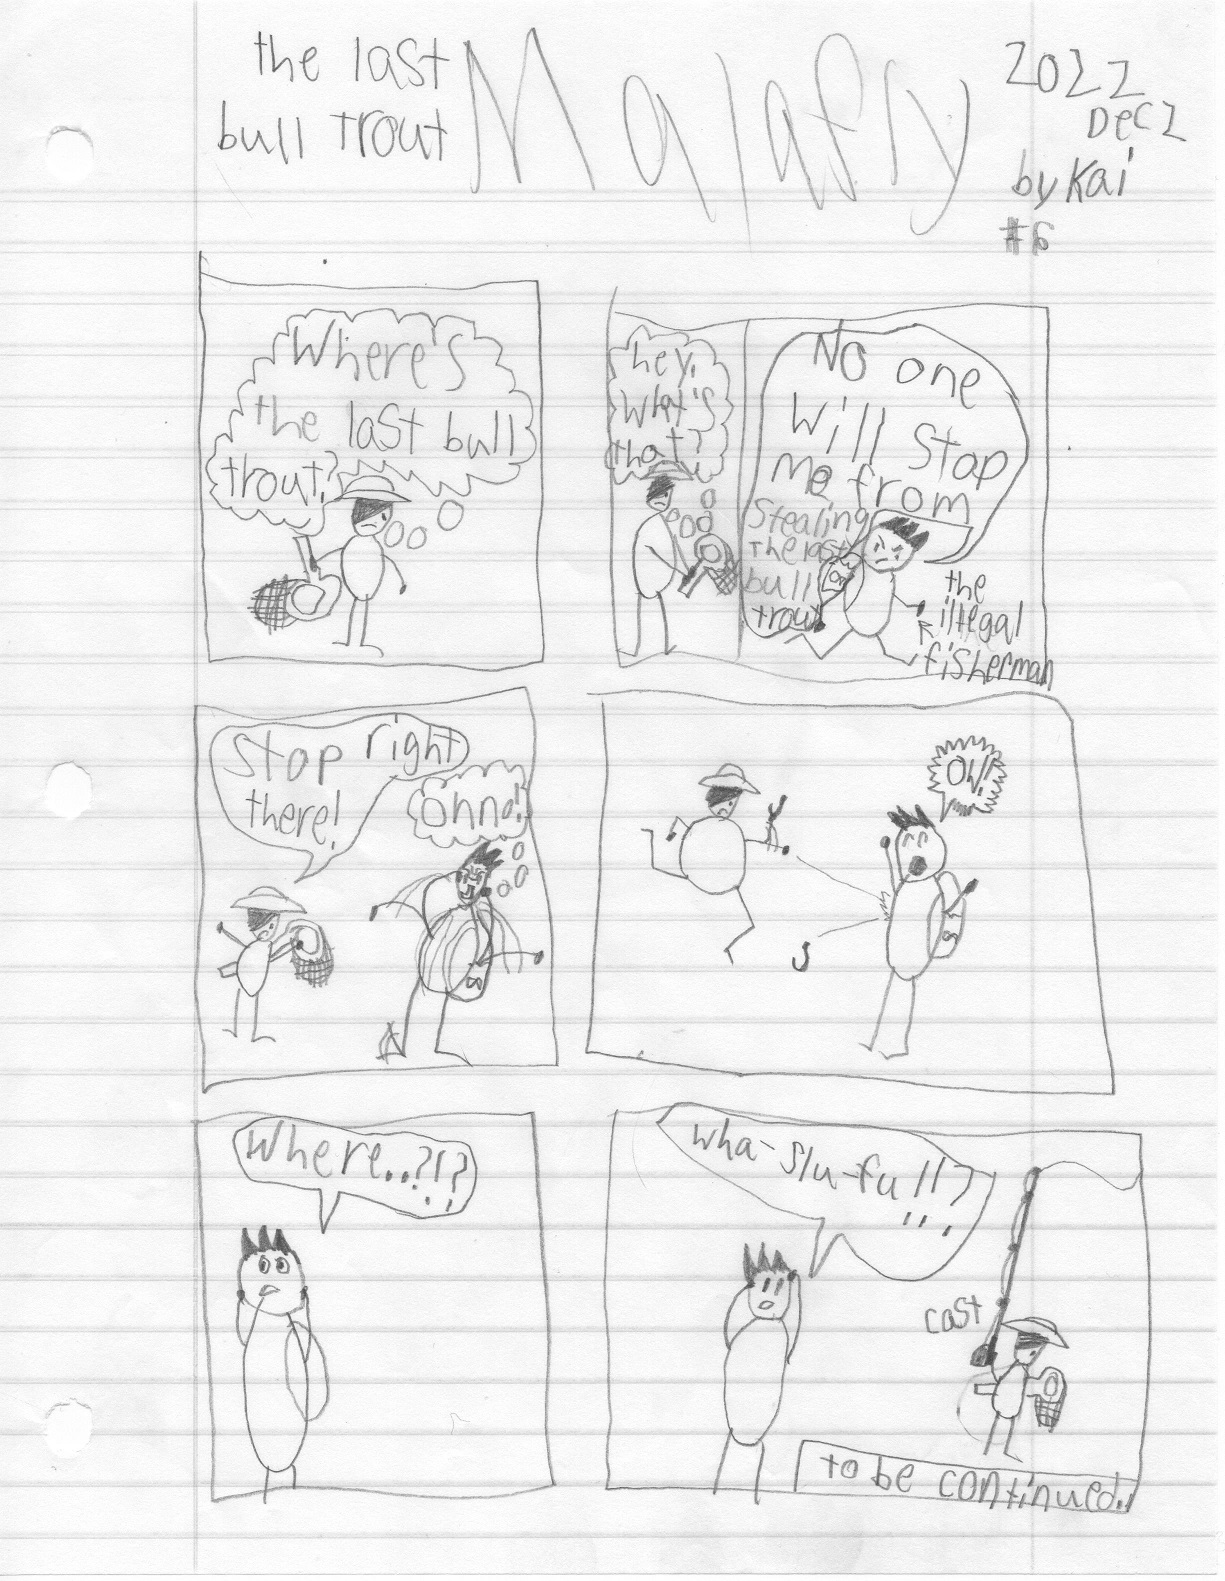 the last
bull trout
Malafry
2022
Dec 2
by Kai
#6
Where's
the last bull
trout?
hey,
What's
that?
No one
Will Stop
me from
Stealing
The last
bull
trout
the
illegal
fisherman
Stop right
there!
ohno!
OW!
Where..?!?
wha-Slu-full?
cast
to be continued..